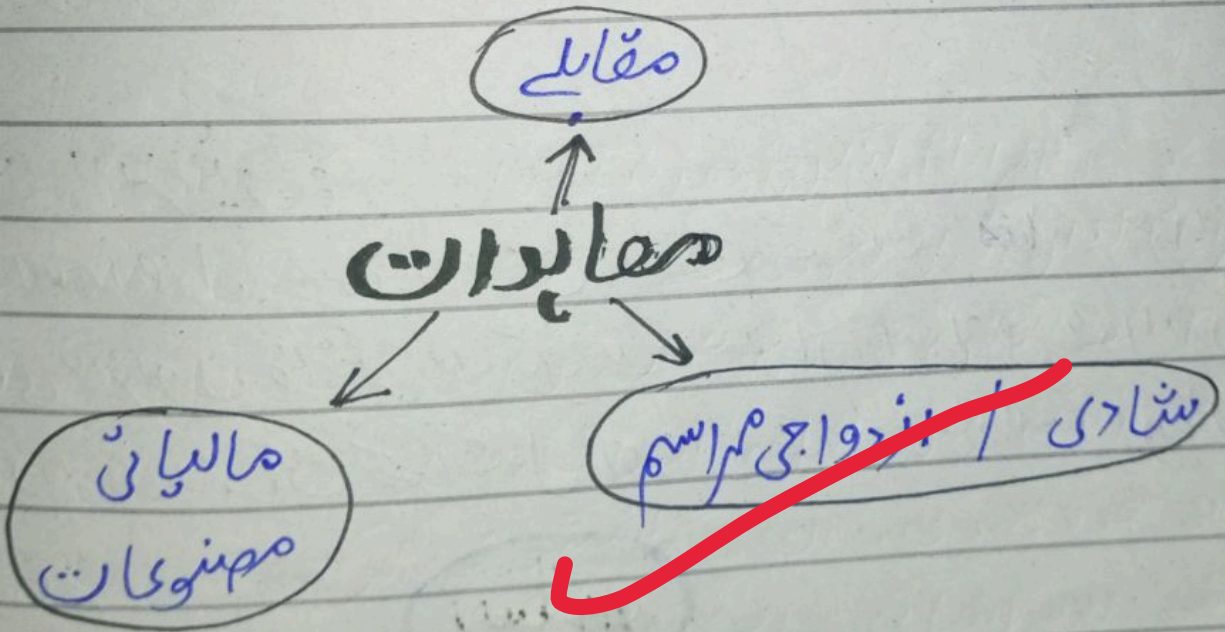 مقابلے
معاہدات
شادی / ازدواجی مراسم
مالیاتی
مصنوعات